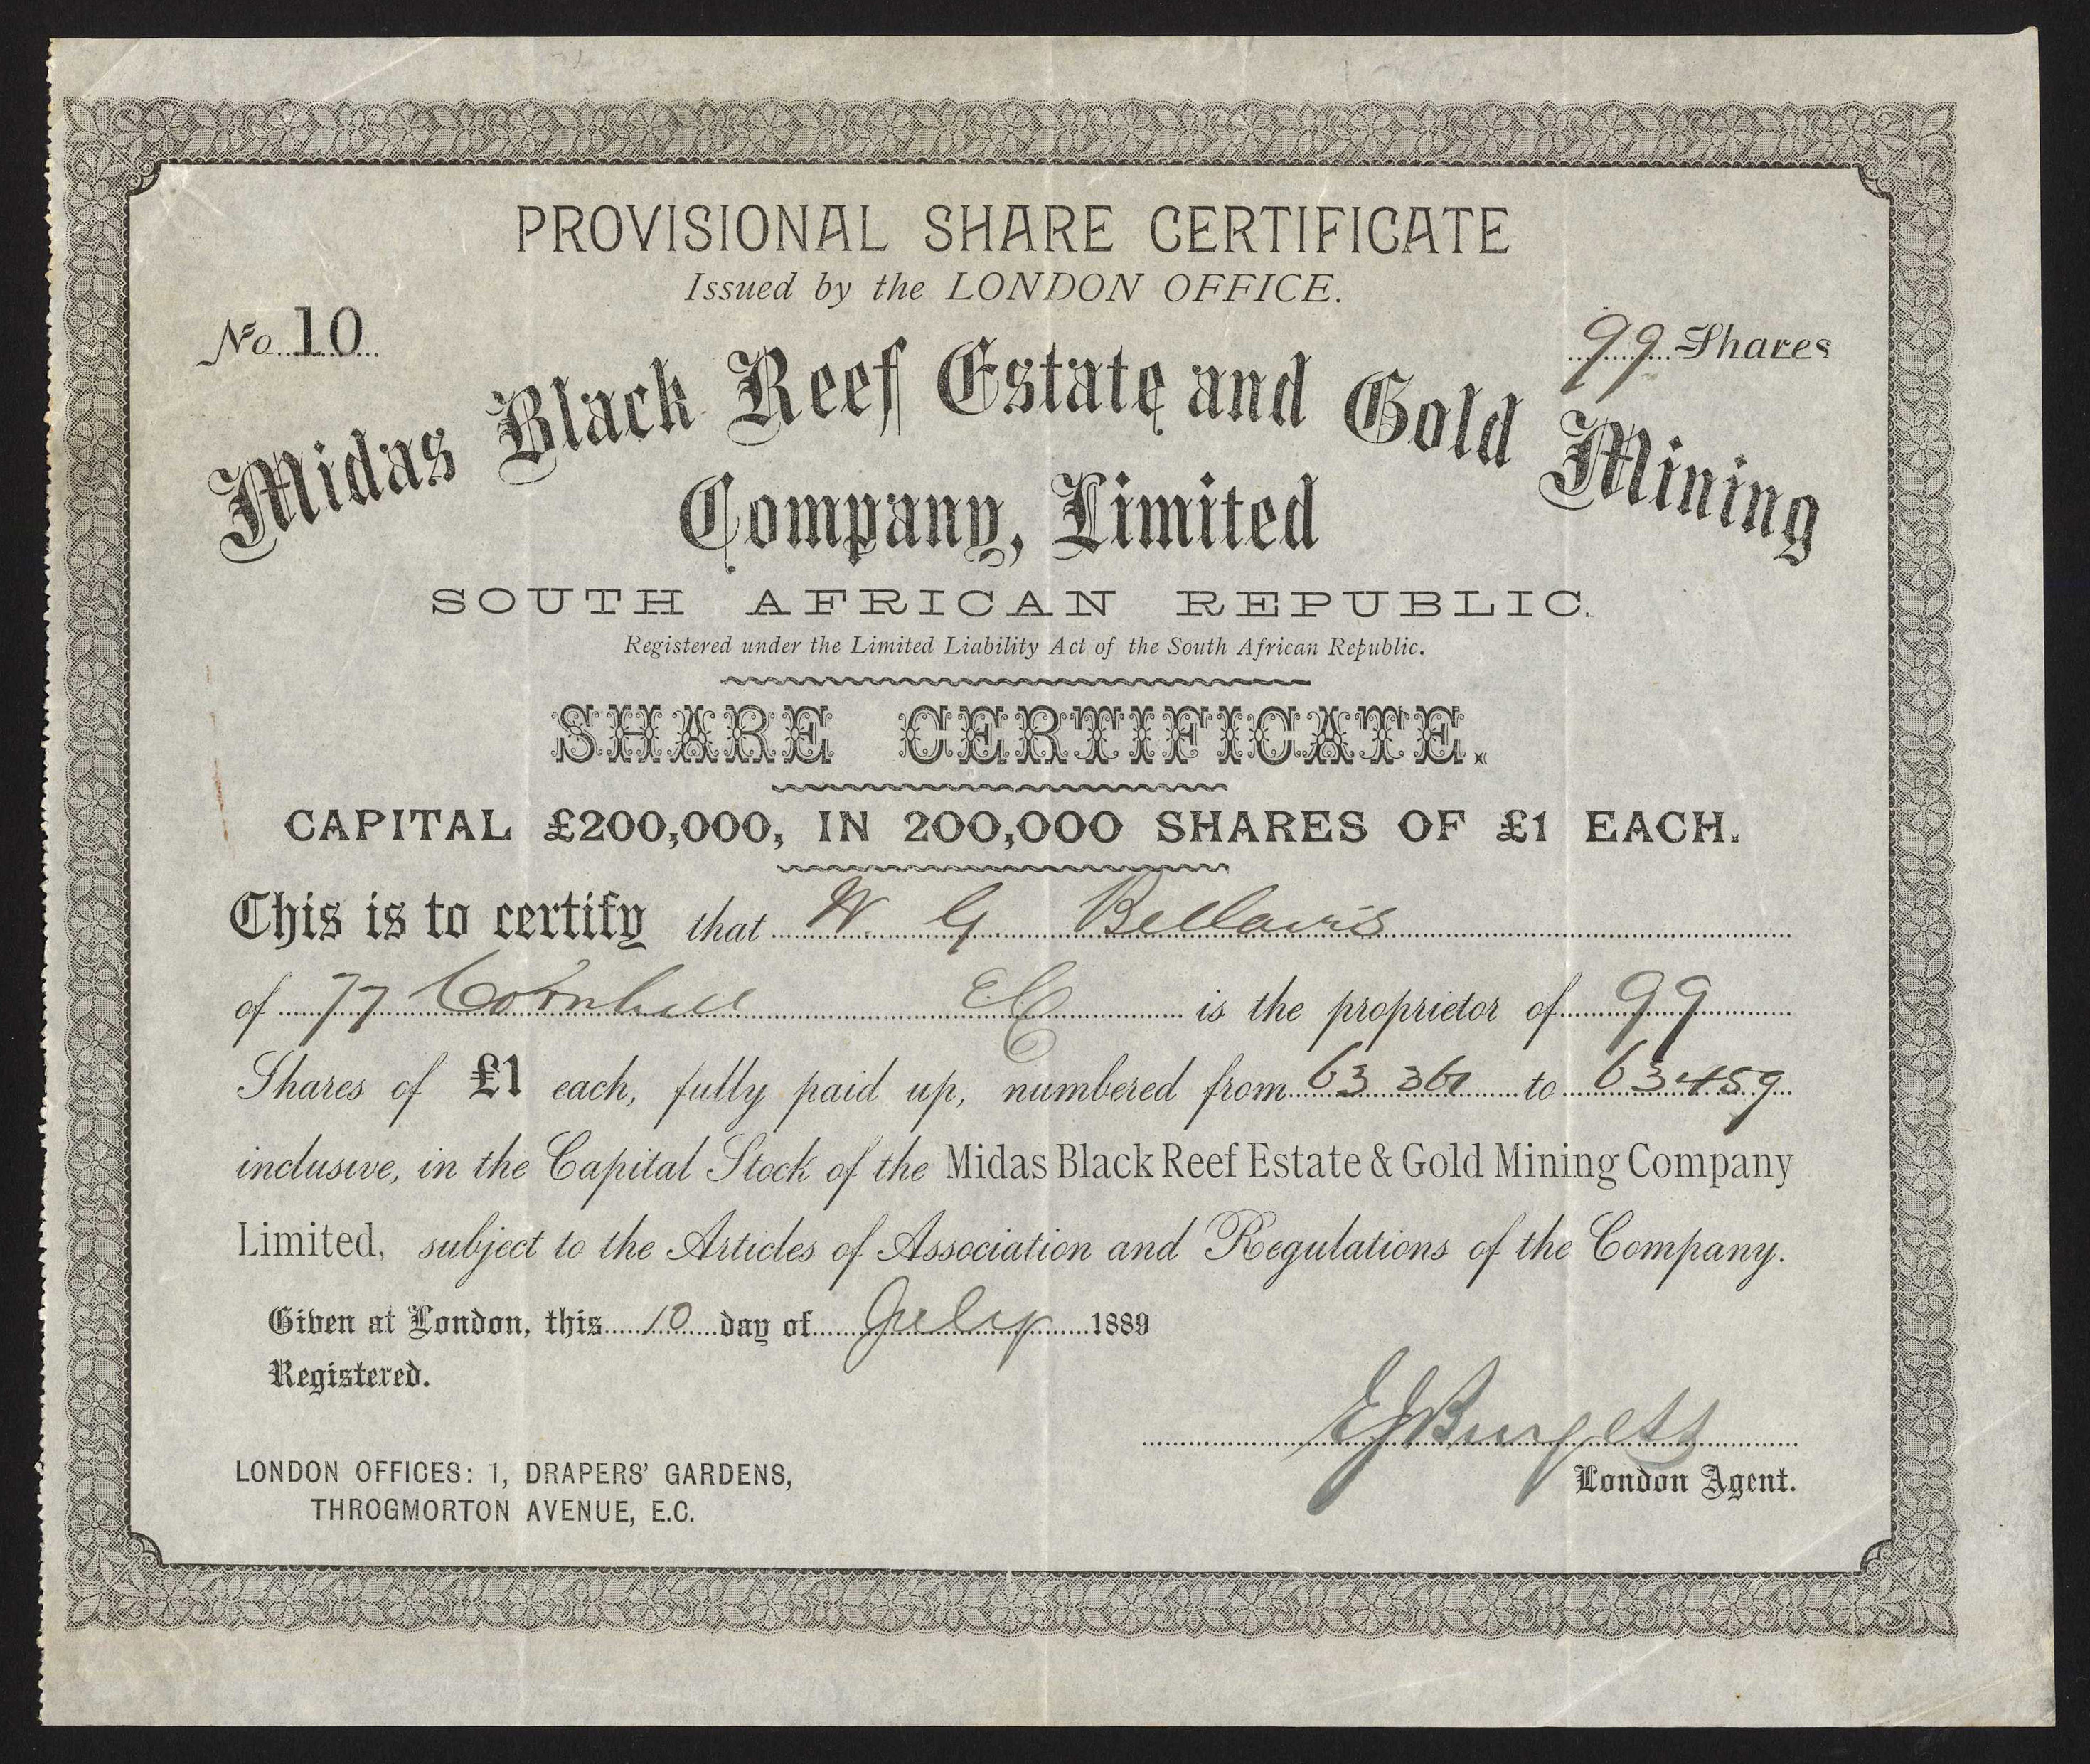 PROVISIONAL SHARE CERTIFICATE
Issued by the LONDON OFFICE.
No 10
99 Shares
Midas Black Reef Estate and Gold Mining
Company, Limited
SOUTH AFRICAN REPUBLIC.
Registered under the Limited Liability Act of the South African Republic.
SHARE CERTIFICATE.
CAPITAL £200,000, IN 200,000 SHARES OF £1 EACH.
This is to certify that W. G. Bellavis
of 77 Cornhill E.C. is the proprietor of 99
Shares of £1 each, fully paid up, numbered from 63361 to 63459
inclusive, in the Capital Stock of the Midas Black Reef Estate & Gold Mining Company
Limited, subject to the Articles of Association and Regulations of the Company.
Given at London, this 10 day of July 1889
Registered.
E J Burgess
London Agent.
LONDON OFFICES: 1, DRAPERS' GARDENS,
THROGMORTON AVENUE, E.C.